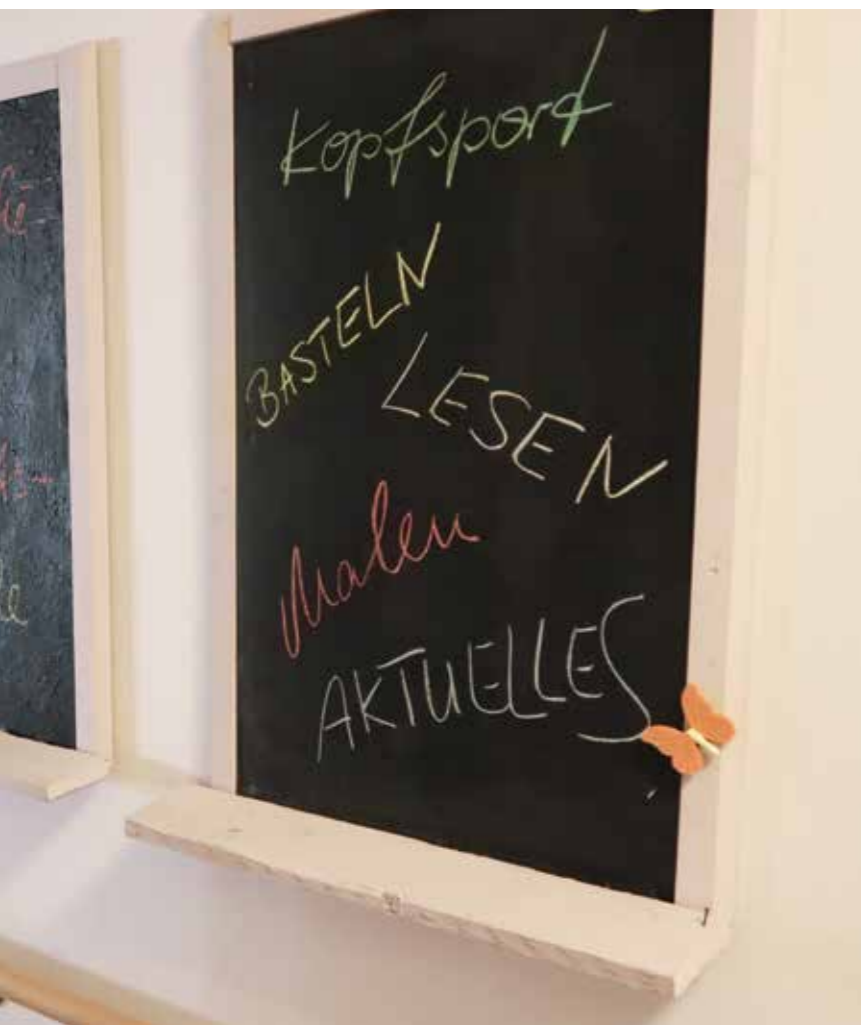 Kopfsport
BASTELN
LESEN
Malen
AKTUELLES